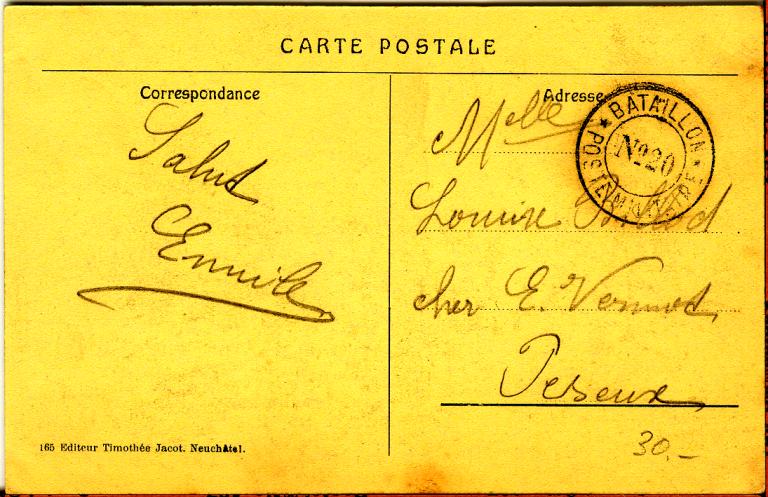 CARTE POSTALE
Correspondance
Salut
Emile
165 Editeur Timothée Jacot. Neuchâtel.
Adresse
Melle
Louise
chez E. Vermot
Peseux
BATAILLON No 20 POSTE MILITAIRE
30.-